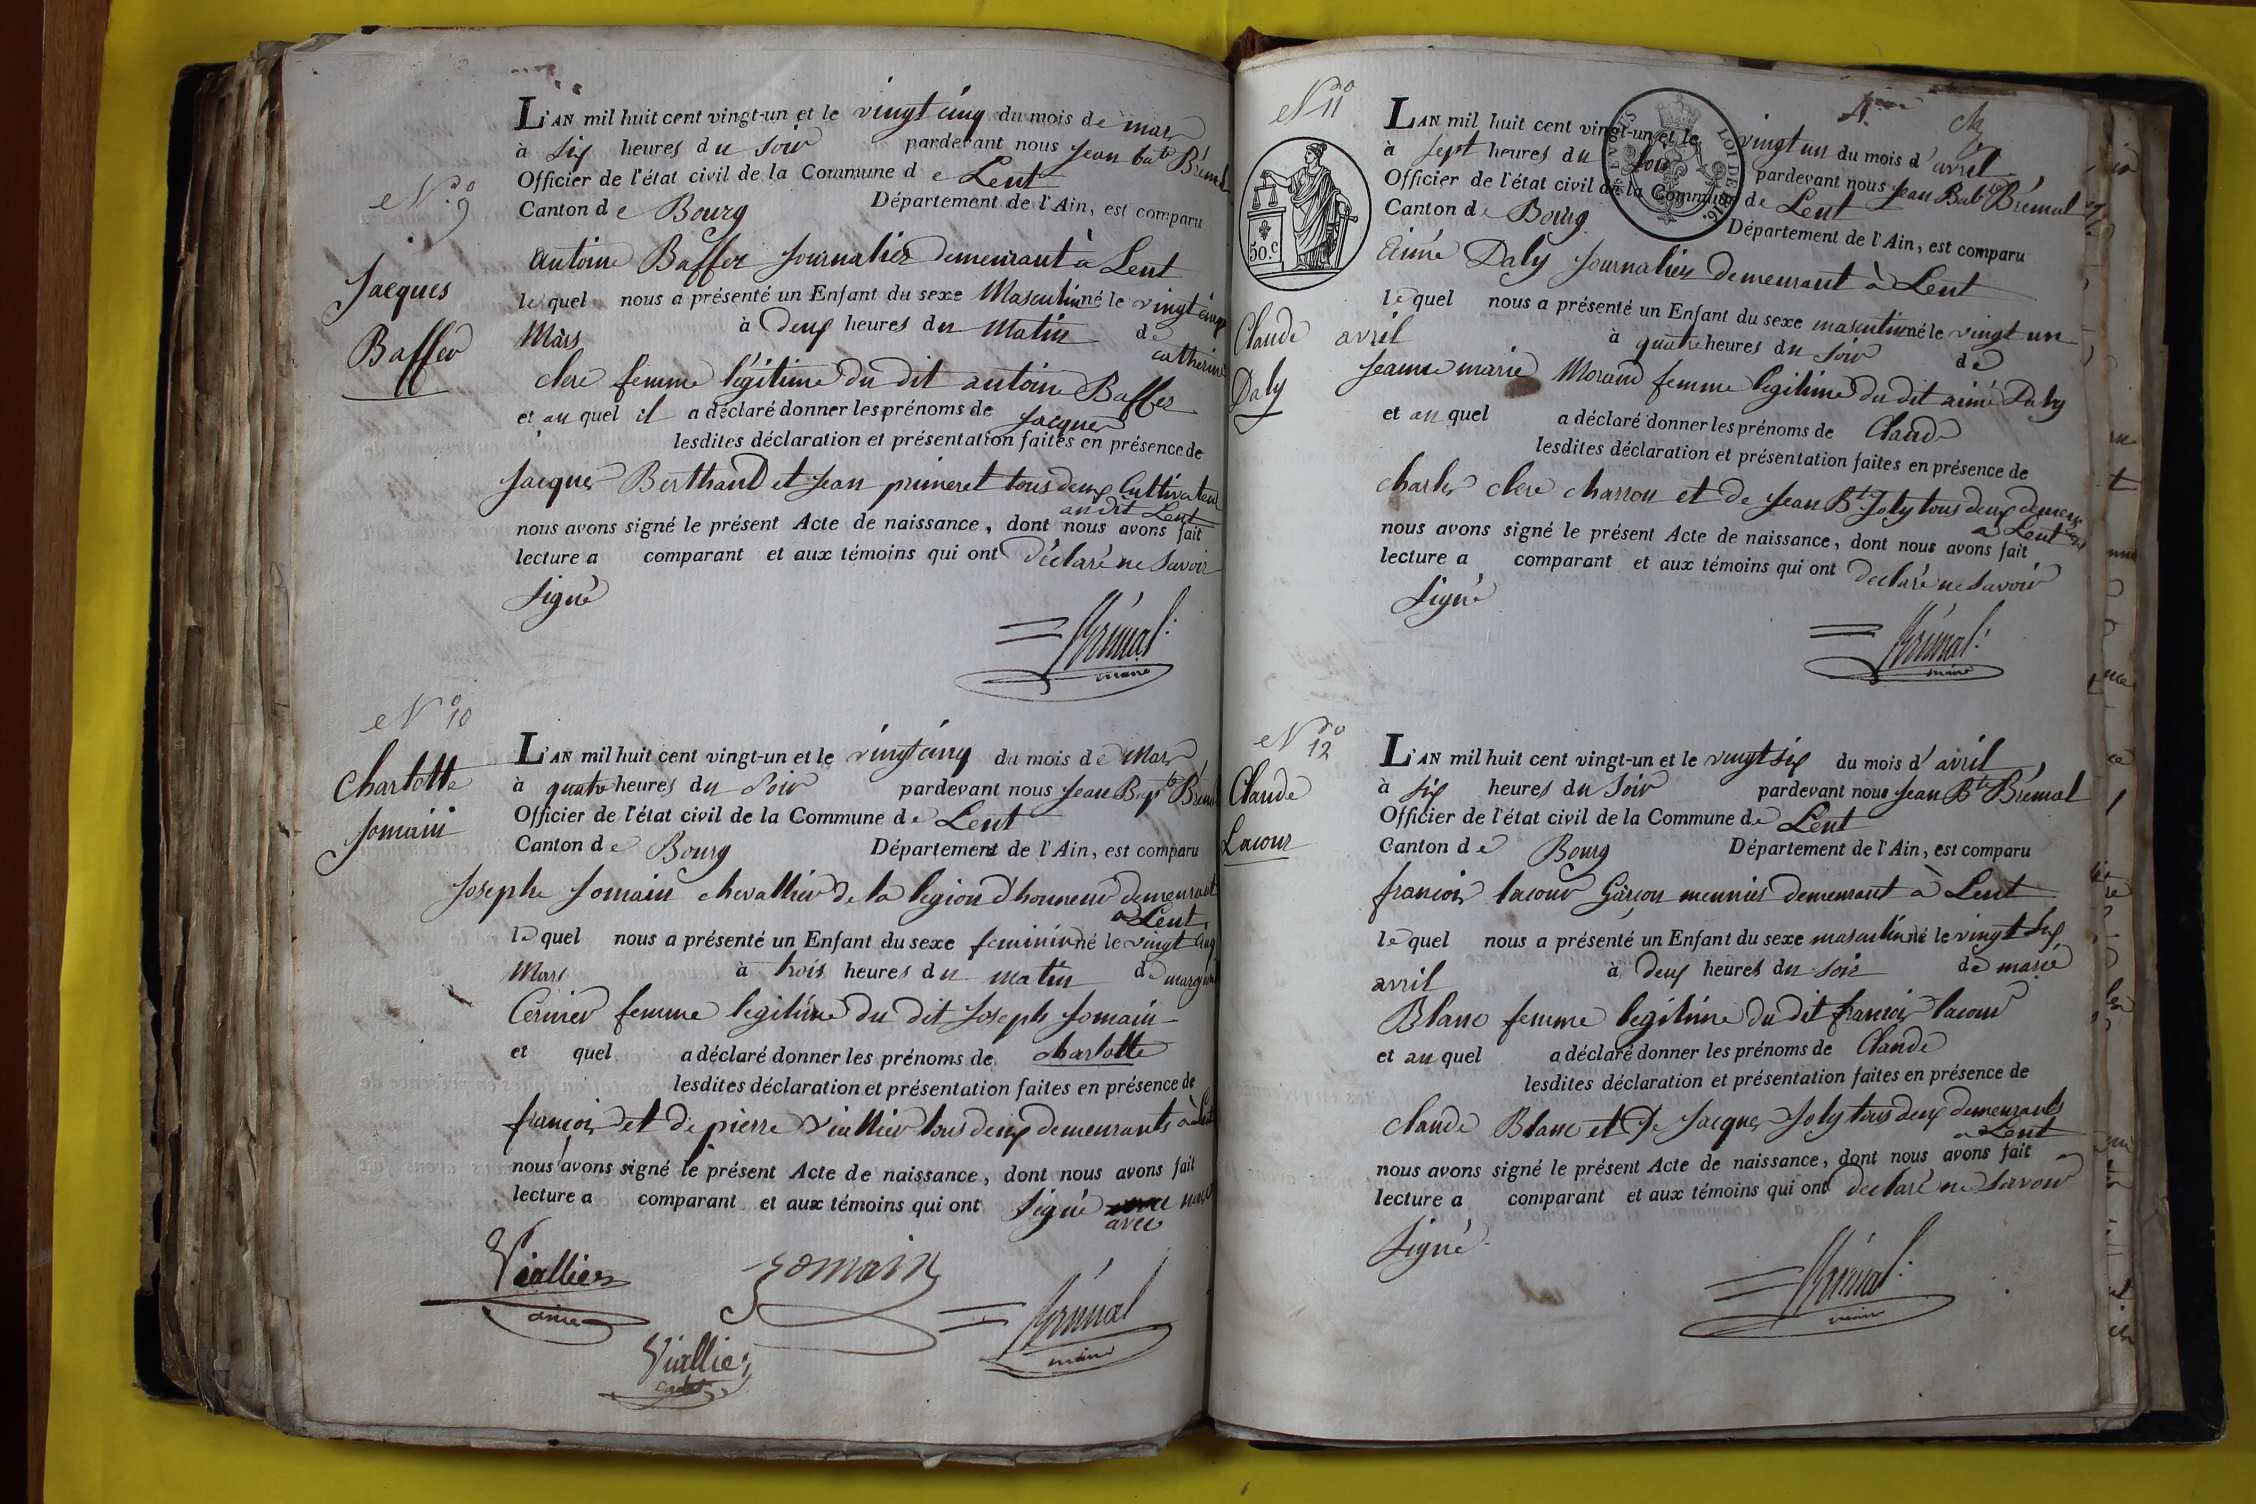 N.º 9
Jacques
Baffer
L'AN mil huit cent vingt-un et le vingt cinq du mois de mars
à Six heures du Soir pardevant nous Jean bate Brémal
Officier de l'état civil de la Commune de Lent
Canton de Bourg Département de l'Ain, est comparu
antoine Baffer Journalier demeurant à Lent
lequel nous a présenté un Enfant du sexe Masculin né le vingt cinq
Mars à Deux heures du Matin de catherine
clere femme légitime du dit antoine Baffer
et au quel il a déclaré donner les prénoms de Jacques
lesdites déclaration et présentation faites en présence de
Jacques Berthaud et Jean primeret tous deux Cultivateur
au dit Lent
nous avons signé le présent Acte de naissance, dont nous avons fait
lecture a comparant et aux témoins qui ont déclaré ne Savoir
Signé
Brémal
maire
Nº 10
Charlotte
Jomain
L'AN mil huit cent vingt-un et le vingt cinq du mois de Mars
à quatre heures du Soir pardevant nous Jean Bapte Brémal
Officier de l'état civil de la Commune de Lent
Canton de Bourg Département de l'Ain, est comparu
Josephe Jomain chevallier de la legion d'honneur demeurant
a Lent
lequel nous a présenté un Enfant du sexe feminin né le vingt cinq
Mars à trois heures du matin de
Cerisier femme legitime du dit Joseph Jomain
et quel a déclaré donner les prénoms de charlotte
lesdites déclaration et présentation faites en présence de
françois et de pierre Viallier tous deux demeurants à Lent
nous avons signé le présent Acte de naissance, dont nous avons fait
lecture a comparant et aux témoins qui ont Signé avec nous
avec
Viallier
ainé
Jomain
Viallier
cadet
Brémal
maire
Nº 11
Claude
Daly
50.c
LOI DE 1816.
L'AN mil huit cent vingt-un et le vingt un du mois d'avril
à Sept heures du Soir pardevant nous Jean Bate Brémal
Officier de l'état civil de la Commune de Lent
Canton de Bourg Département de l'Ain, est comparu
Aimé Daly Journalier demeurant à Lent
lequel nous a présenté un Enfant du sexe masculin né le vingt un
avril à quatre heures du Soir de
Jeanne marie Morand femme legitime du dit aimé Daly
et au quel a déclaré donner les prénoms de Claude
lesdites déclaration et présentation faites en présence de
charles clere charron et de Jean Bte Joly tous deux demeurant
a Lent
nous avons signé le présent Acte de naissance, dont nous avons fait
lecture a comparant et aux témoins qui ont declaré ne Savoir
Signé
Brémal
maire
Nº 12
Claude
Lacour
L'AN mil huit cent vingt-un et le vingt six du mois d'avril
à Six heures du Soir pardevant nous Jean Bte Brémal
Officier de l'état civil de la Commune de Lent
Canton de Bourg Département de l'Ain, est comparu
françois lacour Garçon meunier demeurant à Lent
lequel nous a présenté un Enfant du sexe masculin né le vingt Six
avril à deux heures du Soir de marie
Blanc femme legitime du dit françois lacour
et au quel a déclaré donner les prénoms de Claude
lesdites déclaration et présentation faites en présence de
claude Blanc et de Jacques Joly tous deux demeurants
a Lent
nous avons signé le présent Acte de naissance, dont nous avons fait
lecture a comparant et aux témoins qui ont declaré ne Savoir
Signé
Brémal
maire